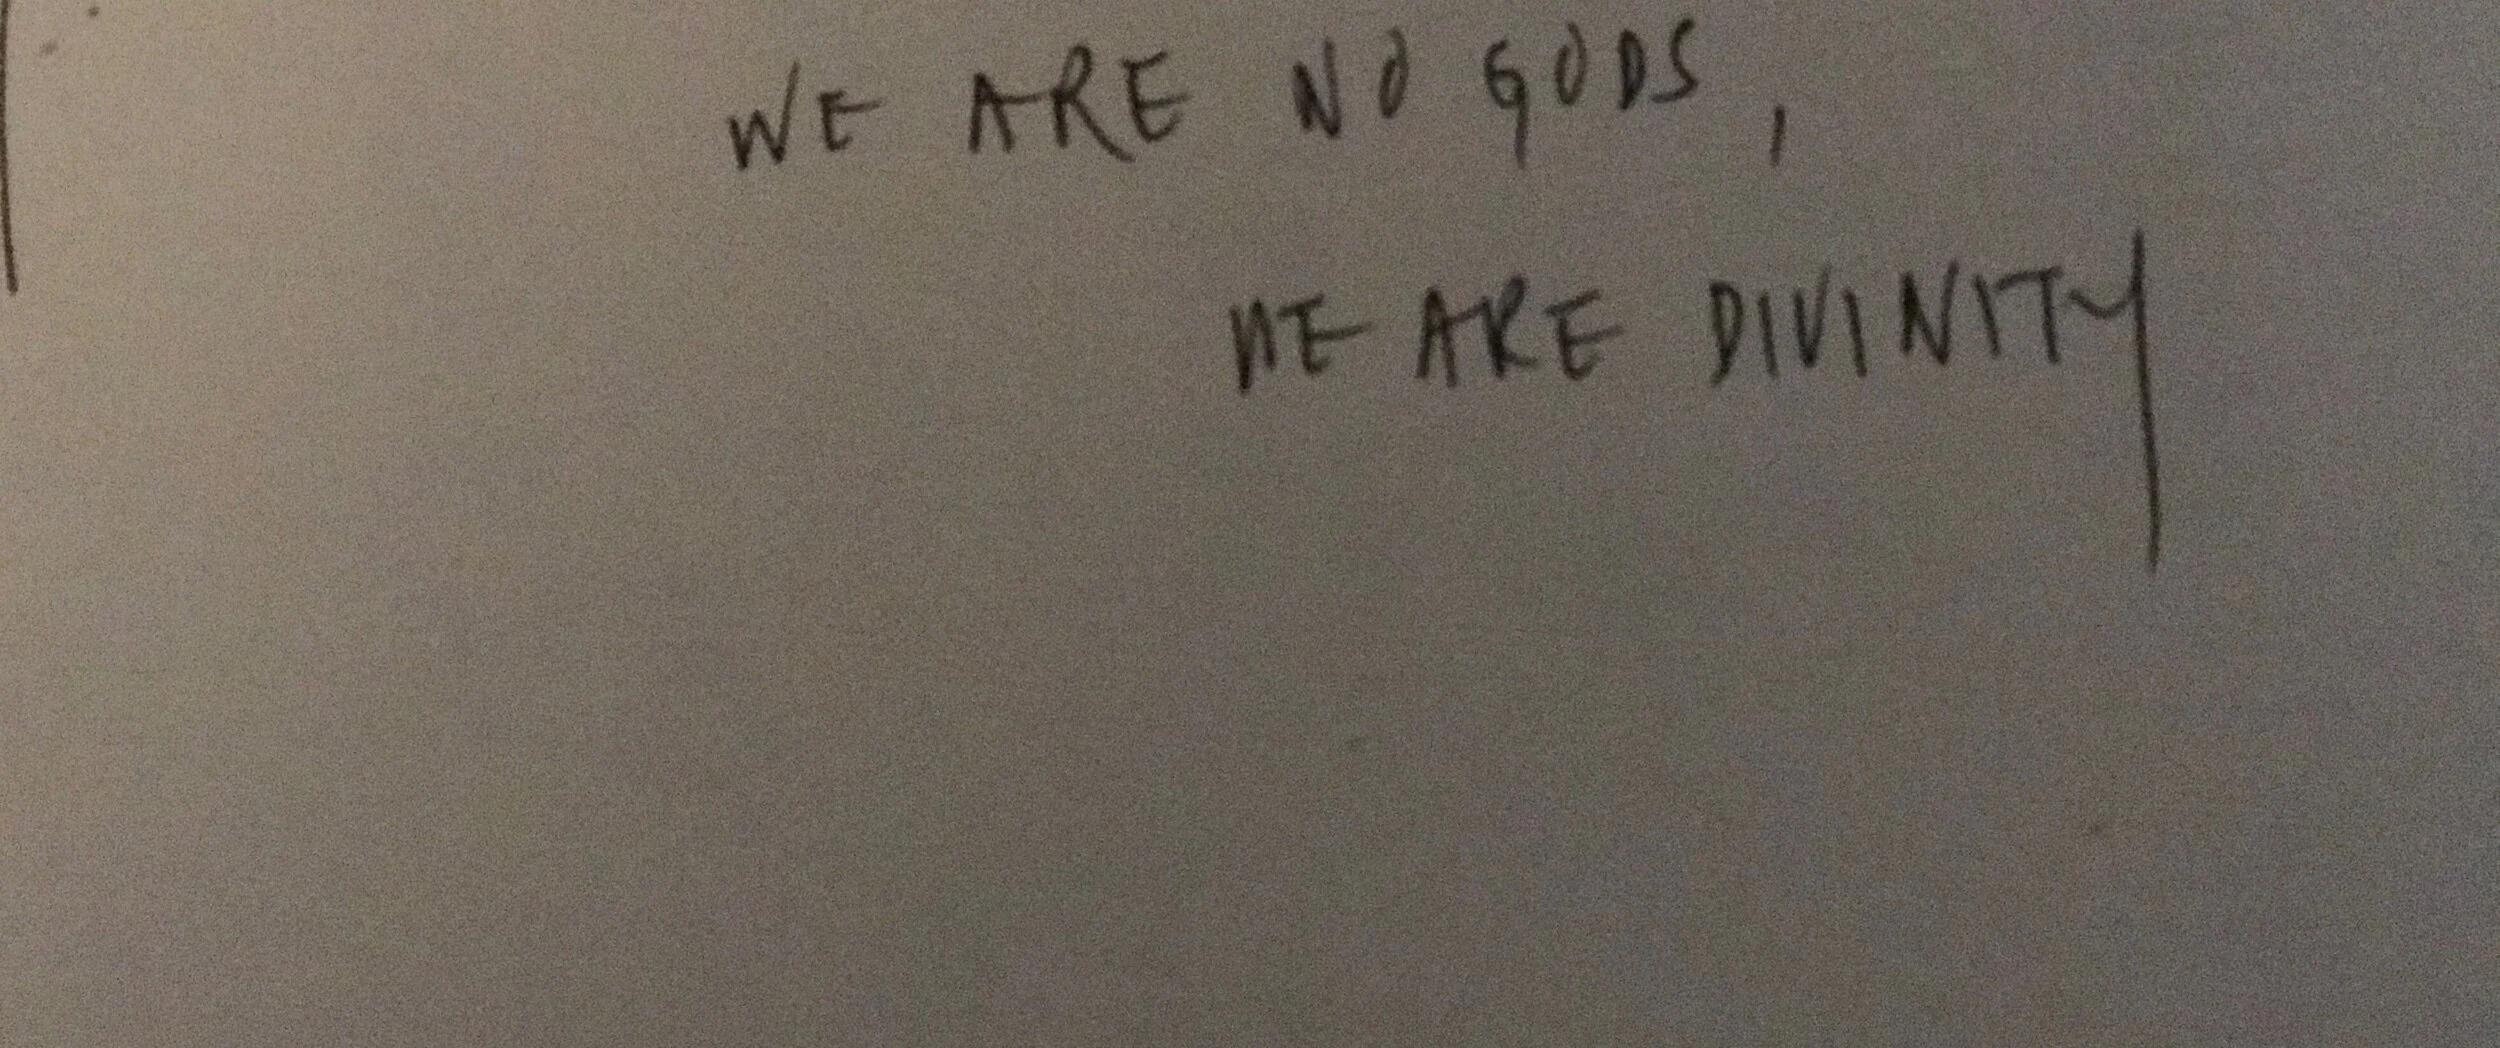 WE ARE NO GODS,
WE ARE DIVINITY